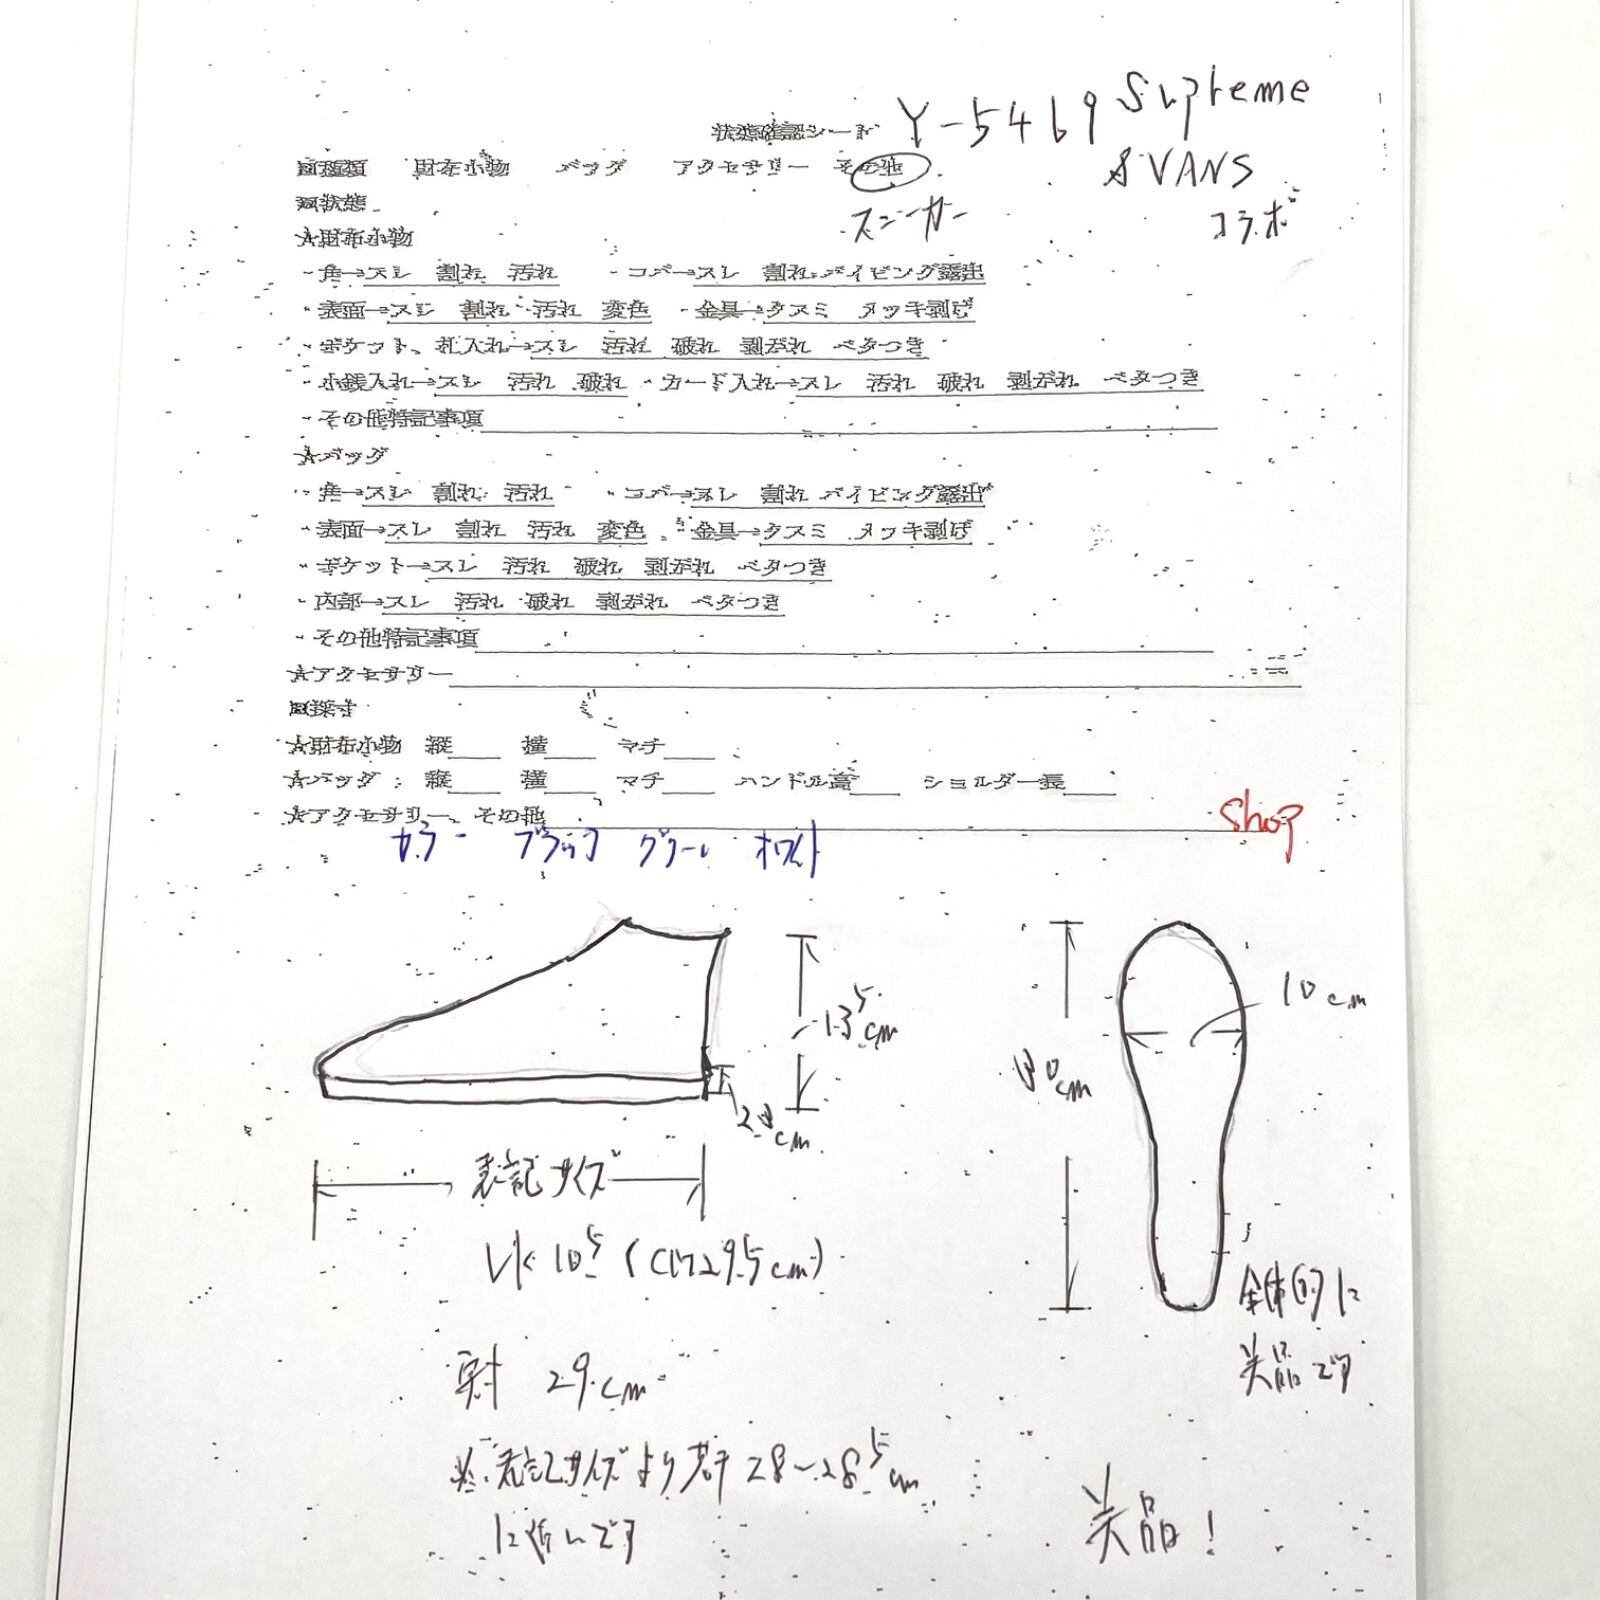 状態確認シート Y-5469 Supreme
&VANS
コラボ
□種類 財布小物 バッグ アクセサリー その他
スニーカー
□状態
☆財布小物
・角→スレ 割れ 汚れ ・コバ→スレ 割れ パイピング露出
・表面→スレ 割れ 汚れ 変色 ・金具→クスミ メッキ剥げ
・ポケット、札入れ→スレ 汚れ 破れ 剥がれ ベタつき
・小銭入れ→スレ 汚れ 破れ ・カード入れ→スレ 汚れ 破れ 剥がれ ベタつき
・その他特記事項
☆バッグ
・角→スレ 割れ 汚れ ・コバ→スレ 割れ パイピング露出
・表面→スレ 割れ 汚れ 変色 ・金具→クスミ メッキ剥げ
・ポケット→スレ 汚れ 破れ 剥がれ ベタつき
・内部→スレ 汚れ 破れ 剥がれ ベタつき
・その他特記事項
☆アクセサリー
□採寸
☆財布小物 縦 横 マチ
☆バッグ：縦 横 マチ ハンドル高 ショルダー長
☆アクセサリー、その他
Shop
カラー ブラック グリーン ホワイト
13.5cm
10cm
30cm
2.8cm
表記サイズ
US 10.5 (CM29.5cm)
全体的に
美品です
実寸 29cm
※表記サイズより若干28〜28.5cm
に近いです
美品！